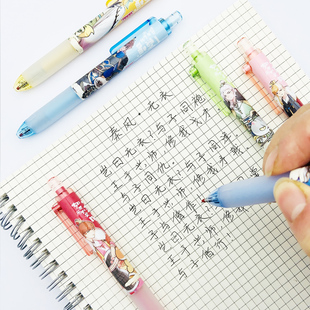 秦风·无衣
岂曰无衣?与子同袍
王于兴师,修我戈矛
与子同仇
岂曰无衣?与子同泽
王于兴师,修我矛戟
与子偕作
岂曰无衣
王于兴师,修我
与子偕行!